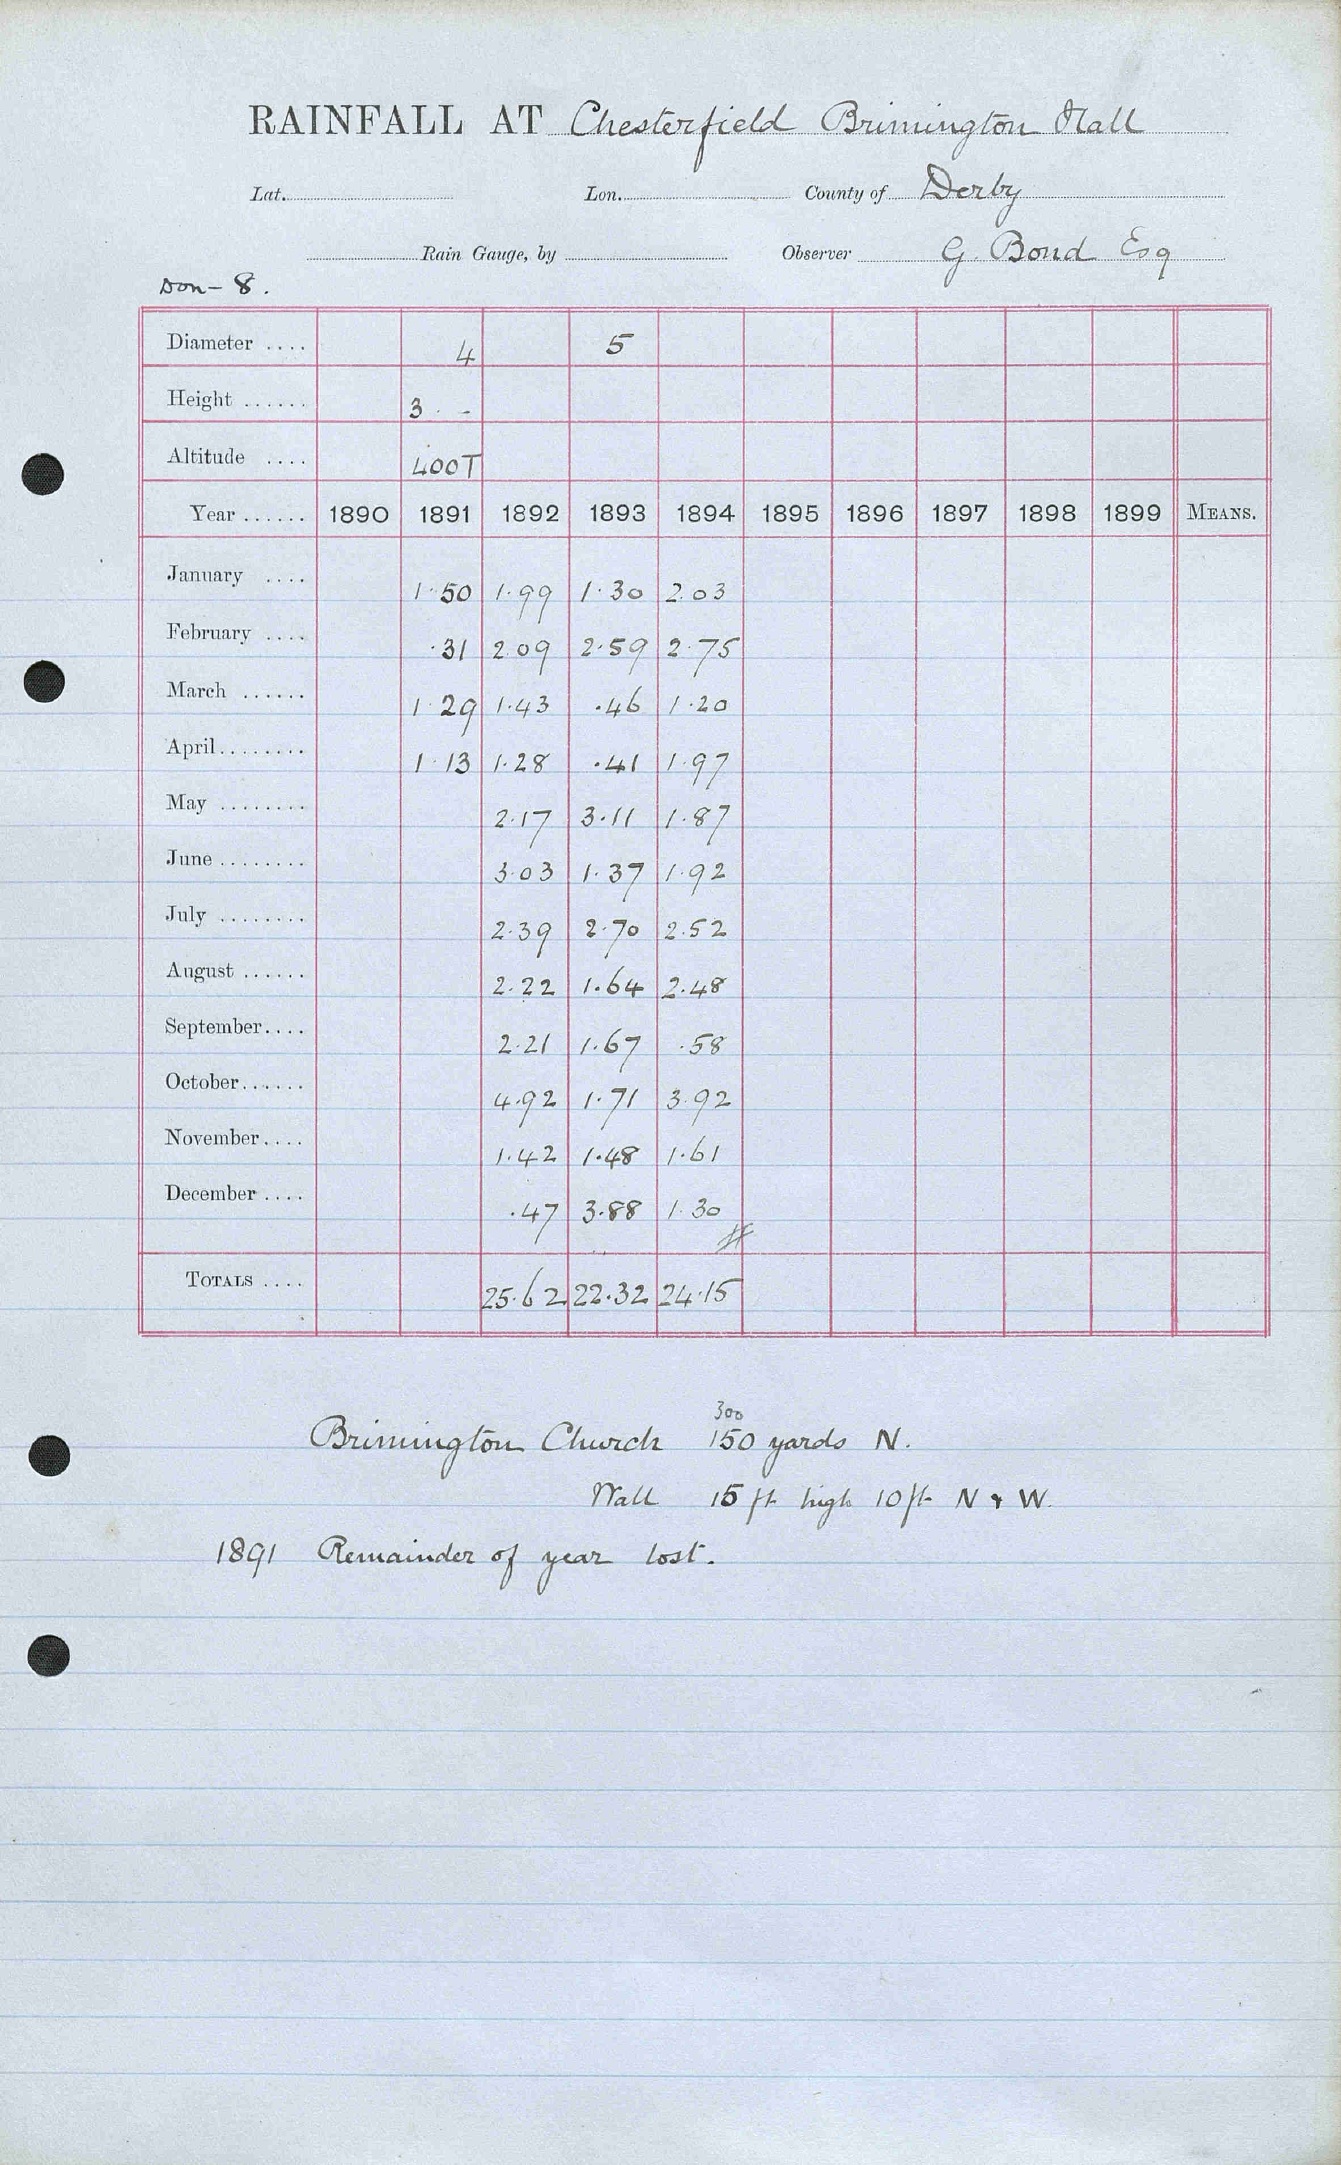 RAINFALL AT Chesterfield Brimington Hall
Lat. Lon. County of Derby
Rain Gauge, by Observer G. Bond Esq
Don - 8.
Diameter .... 4 5
Height ...... 3 . -
Altitude .... 400T
Year ...... 1890 1891 1892 1893 1894 1895 1896 1897 1898 1899 MEANS.
January .... 1.50 1.99 1.30 2.03
February .... .31 2.09 2.59 2.75
March ...... 1.29 1.43 .46 1.20
April ........ 1.13 1.28 .41 1.97
May ........ 2.17 3.11 1.87
June ........ 3.03 1.37 1.92
July ........ 2.39 2.70 2.52
August ...... 2.22 1.64 2.48
September.... 2.21 1.67 .58
October...... 4.92 1.71 3.92
November.... 1.42 1.48 1.61
December .... .47 3.88 1.30
TOTALS .... 25.62 22.32 24.15
300
Brimington Church 150 yards N.
Wall 15 ft high 10ft N & W.
1891 Remainder of year lost.